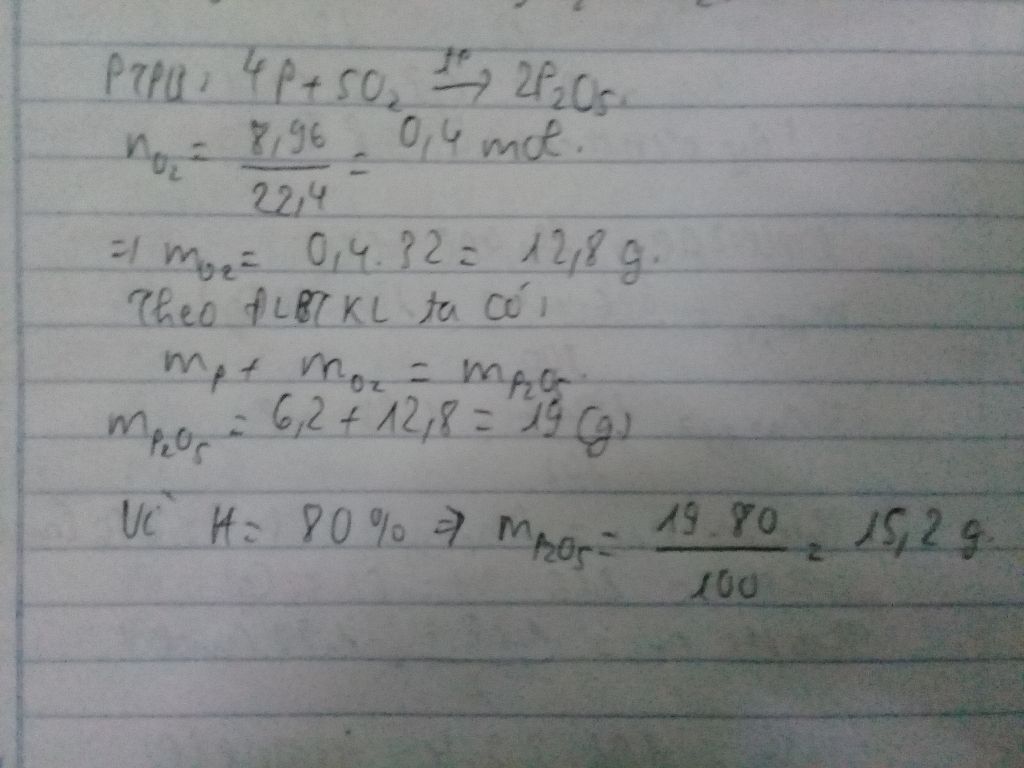 PTPU: 4P + 5O₂ →t° 2P₂O₅.
n_O₂ = 8,96/22,4 = 0,4 mol.
=> m_O₂ = 0,4.32 = 12,8 g.
Theo ĐLBTKL ta có:
m_P + m_O₂ = m_P₂O₅.
m_P₂O₅ = 6,2 + 12,8 = 19 (g)
Vì H = 80% => m_P₂O₅ = 19.80/100 = 15,2 g.